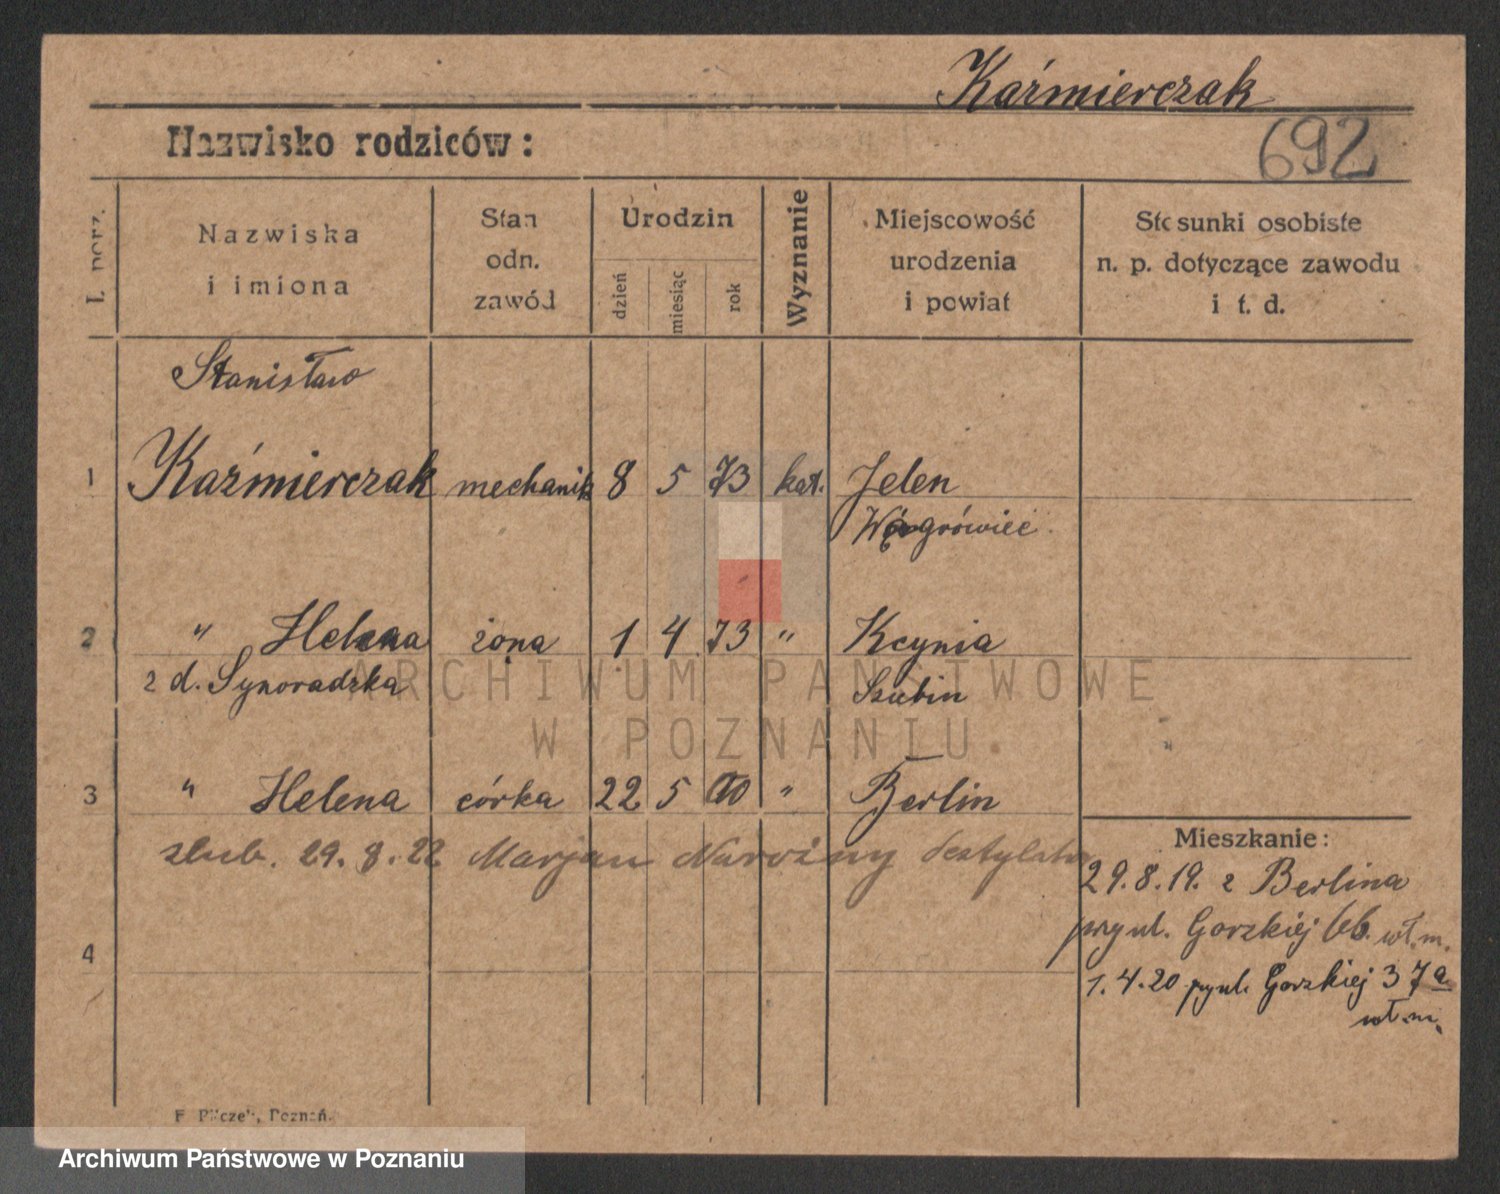 Kaźmierczak
Nazwisko rodziców:
692
L. porz.
Nazwiska
i imiona
Stan
odn.
zawód
Urodzin
dzień
miesiąc
rok
Wyznanie
Miejscowość
urodzenia
i powiat
Stosunki osobiste
n. p. dotyczące zawodu
i t. d.
Stanisław
1 Kaźmierczak mechanik 8 5 73 kat. Jelen
Wągrówiec
2 " Helena żona 1 4 73 " Kcynia
z d. Synoradzka Szubin
3 " Helena córka 22 5 00 " Berlin
ślub. 29. 8. 22 Marjan Narożny
Mieszkanie:
29.8.19. z Berlina
przy ul. Gorzkiéj wł. m.
4
1.4.20 przy ul. Gorzkiej 37a
wł. m.
F. Pilczek, Poznań.
ARCHIWUM PAŃSTWOWE
W POZNANIU
Archiwum Państwowe w Poznaniu